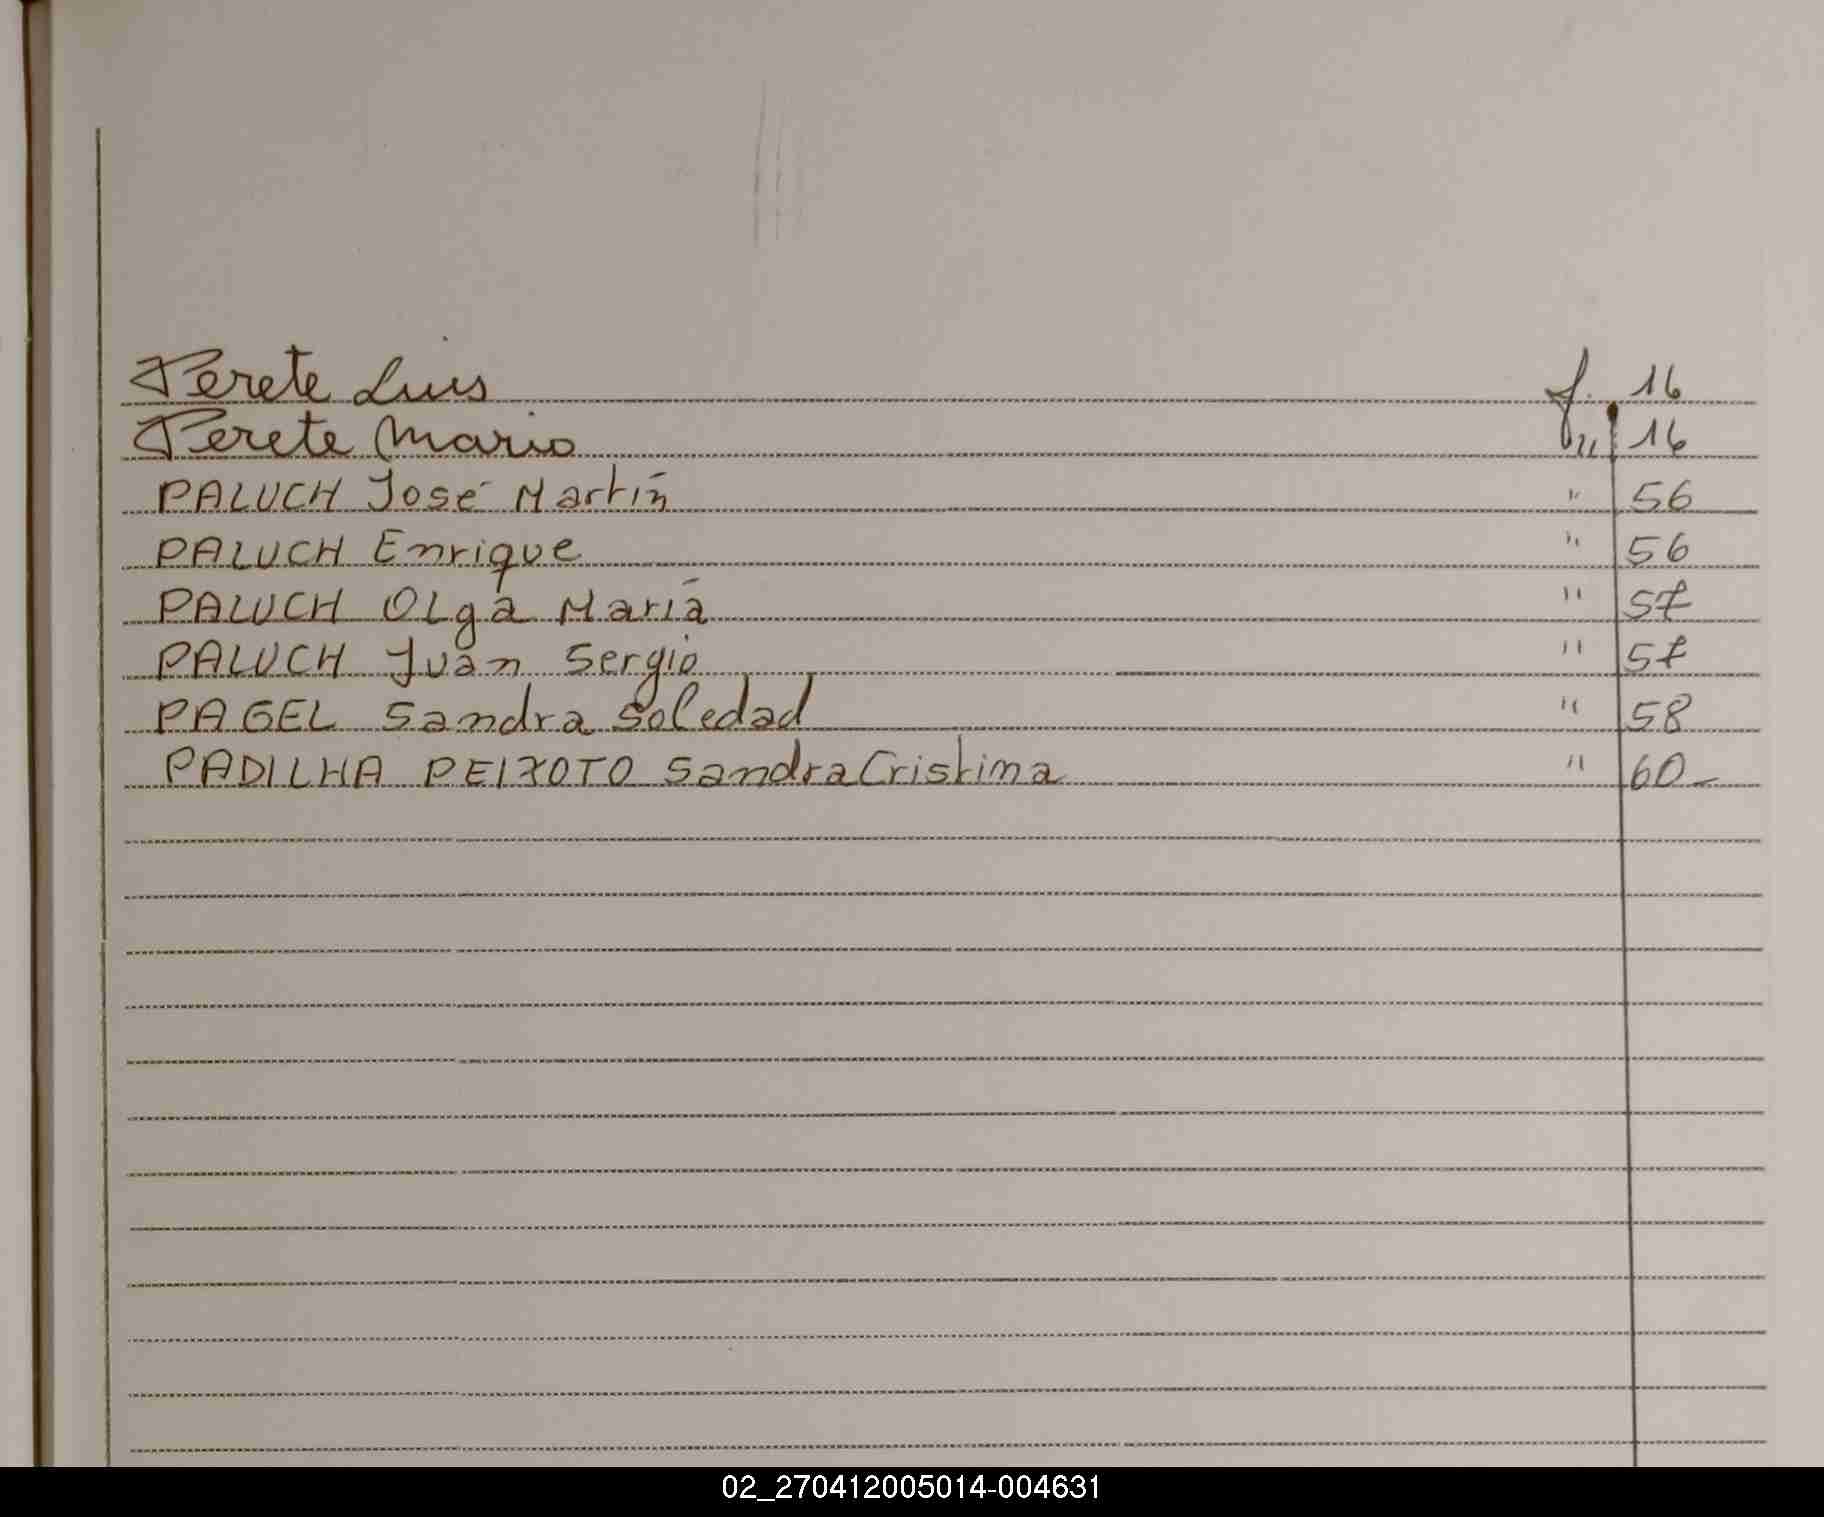 Perete Luis f. 16
Perete Mario " 16
PALUCH José Martín " 56
PALUCH Enrique " 56
PALUCH Olga María " 57
PALUCH Juan Sergio " 57
PAGEL Sandra Soledad " 58
PADILHA PEIXOTO Sandra Cristina " 60_
02_270412005014-004631